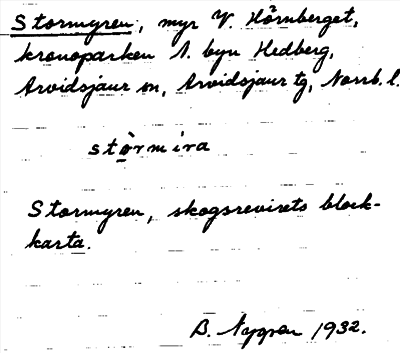 Stormyren, myr V. Hörnberget,
kronoparken N. byn Hedberg,
Arvidsjaur sn, Arvidsjaur tg, Norrb. l.
stòrmira
Stormyren, skogsrevirets block-
karta.
B. Nygren 1932.